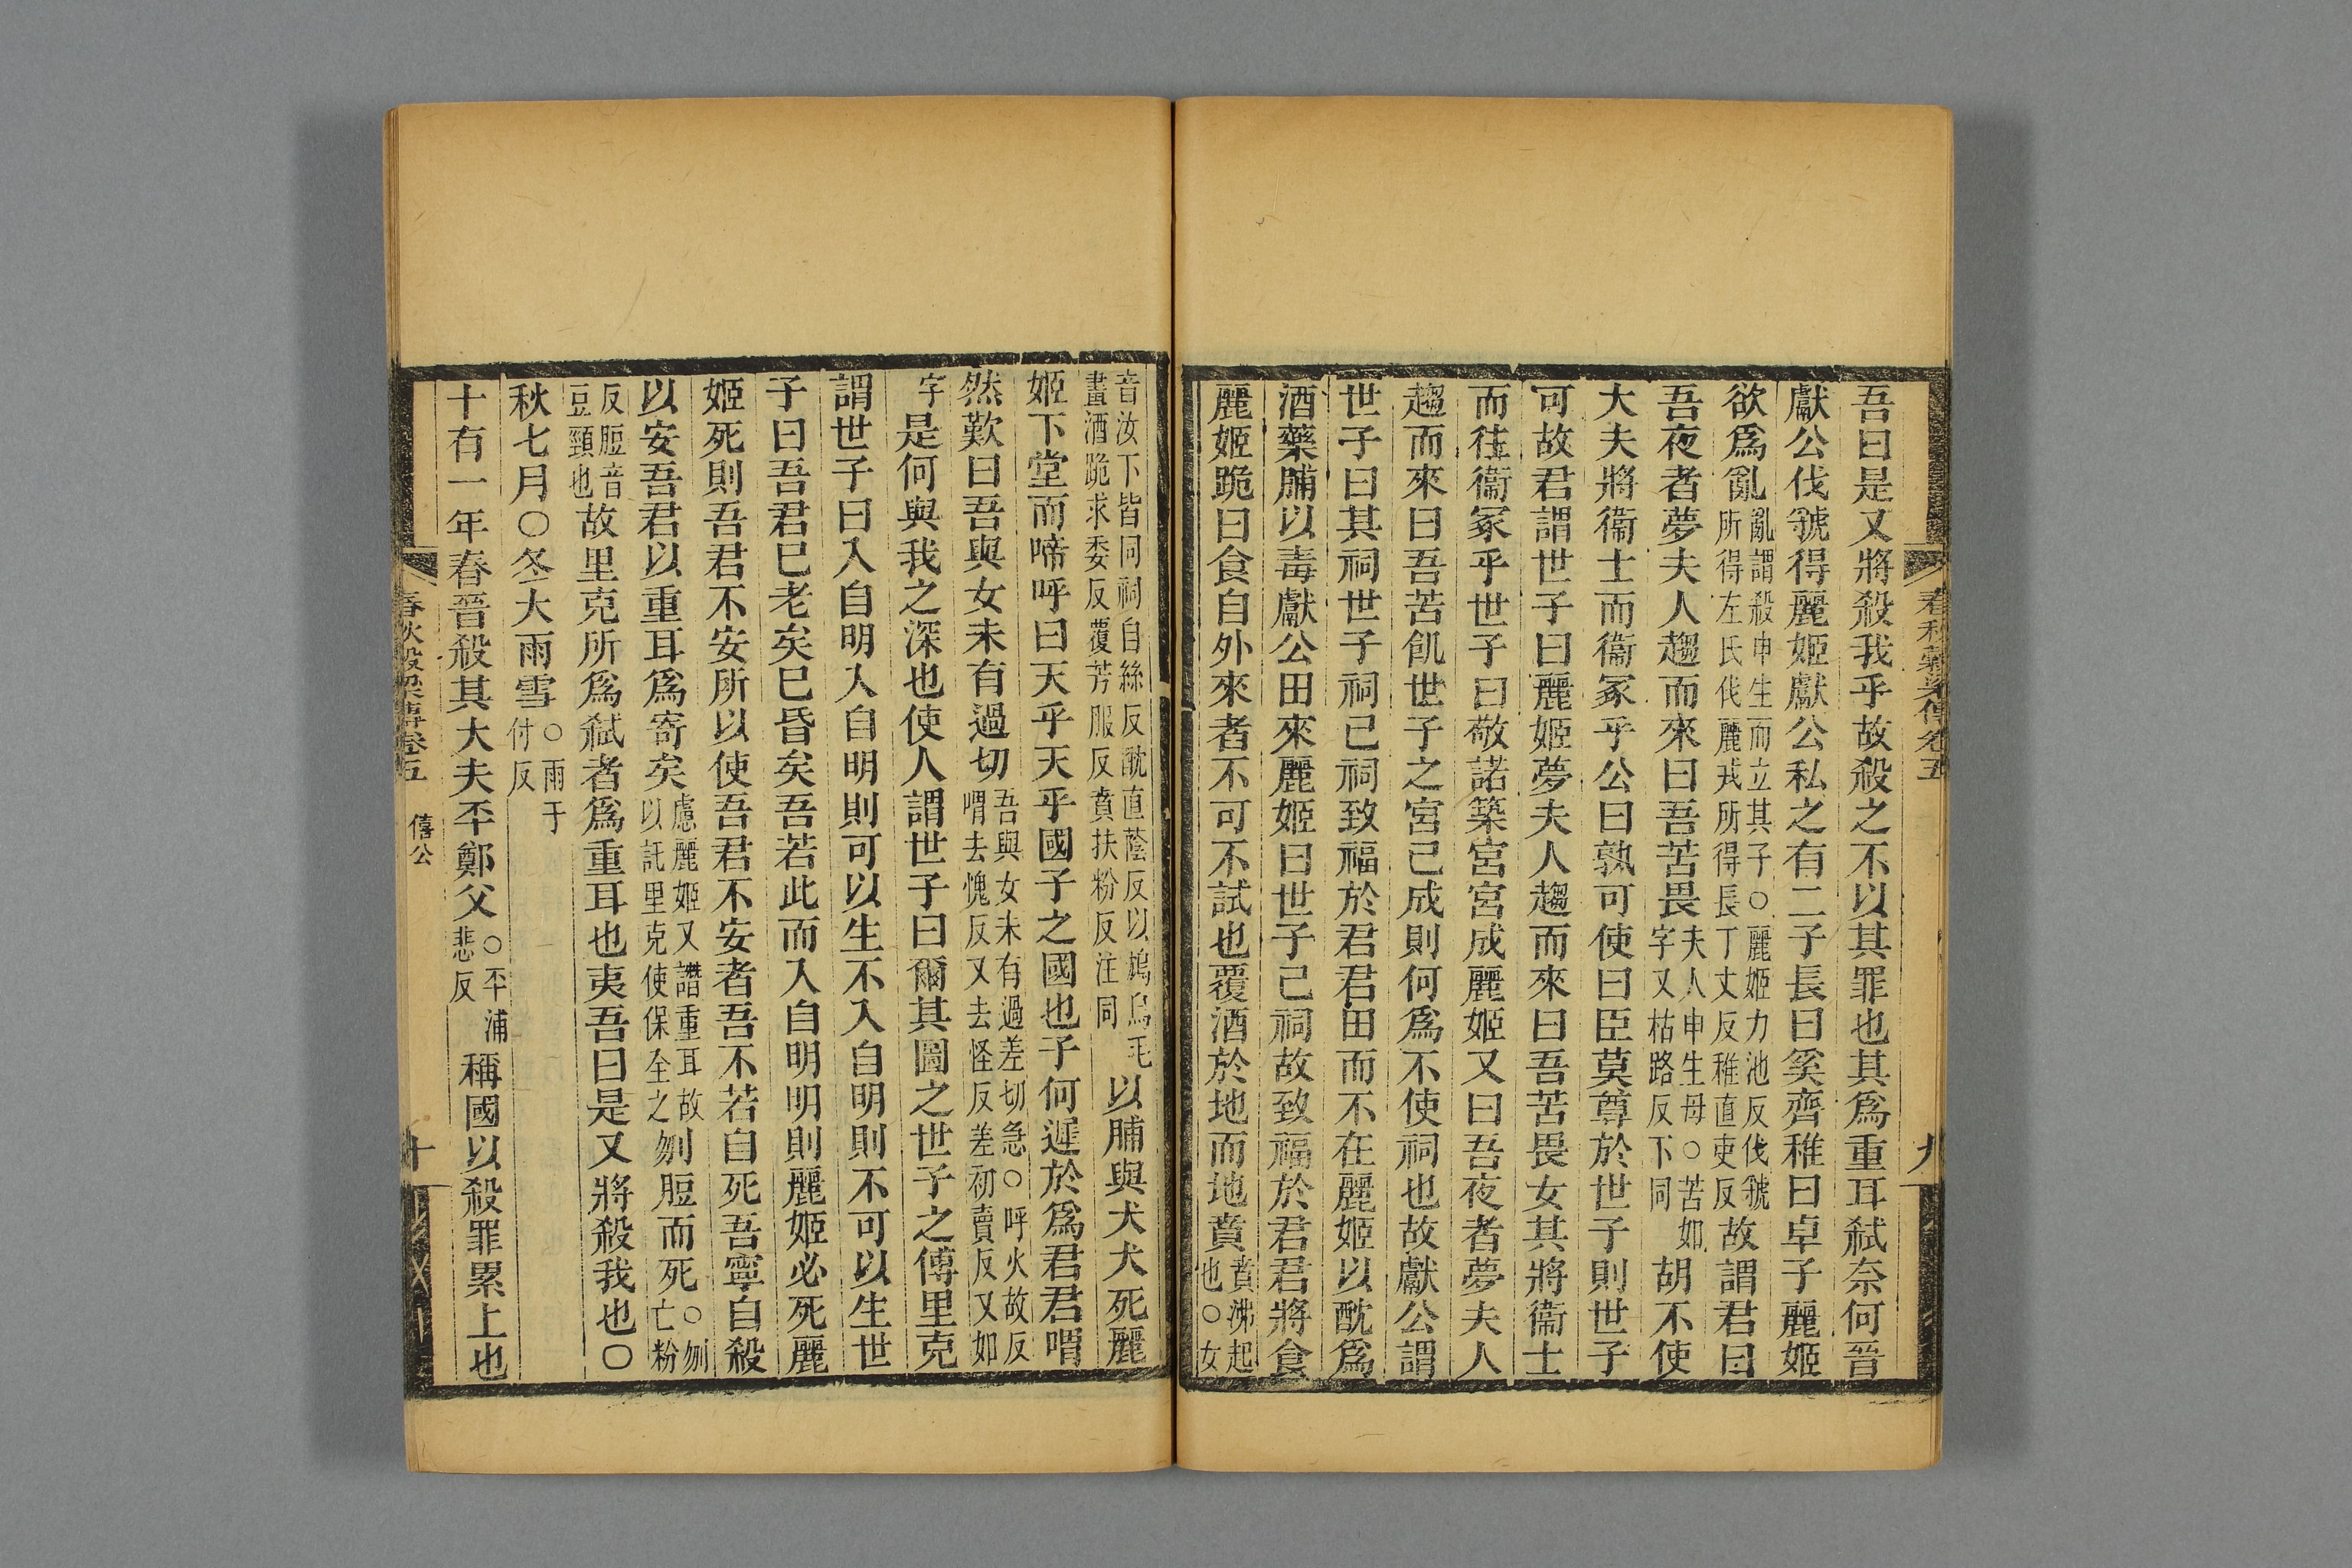 吾曰是又將殺我乎故殺之不以其罪也其爲重耳弑奈何晉
獻公伐虢得麗姬獻公私之有二子長曰奚齊稚曰卓子麗姬
欲爲亂亂謂殺申生而立其子○麗姬力池反伐虢所得左氏伐麗戎所得長丁丈反稚直吏反故謂君曰
吾夜者夢夫人趨而來曰吾苦畏夫人申生母○苦如字又枯路反下同胡不使
大夫將衞士而衞冢乎公曰孰可使曰臣莫尊於世子則世子
可故君謂世子曰麗姬夢夫人趨而來曰吾苦畏女其將衞士
而往衞冢乎世子曰敬諾築宮宮成麗姬又曰吾夜者夢夫人
趨而來曰吾苦飢世子之宮已成則何爲不使祠也故獻公謂
世子曰其祠世子祠已祠致福於君君田而不在麗姬以酖爲
酒藥脯以毒獻公田來麗姬曰世子已祠故致福於君君將食
麗姬跪曰食自外來者不可不試也覆酒於地而地賁賁沸起也○女
音汝下皆同祠自絲反酖直蔭反以鴆鳥毛畫酒跪求委反覆芳服反賁扶粉反注同以脯與犬犬死麗
姬下堂而啼呼曰天乎天乎國子之國也子何遲於爲君君喟
然歎曰吾與女未有過切吾與女未有過差切急○呼火故反喟去愧反又去怪反差初賣反又如
字是何與我之深也使人謂世子曰爾其圖之世子之傅里克
謂世子曰入自明入自明則可以生不入自明則不可以生世
子曰吾君已老矣已昏矣吾若此而入自明明則麗姬必死麗
姬死則吾君不安所以使吾君不安者吾不若自死吾寧自殺
以安吾君以重耳爲寄矣慮麗姬又譖重耳故以託里克使保全之刎脰而死○刎亡粉
反脰音豆頸也故里克所爲弑者爲重耳也夷吾曰是又將殺我也○
秋七月○冬大雨雪○雨于付反
十有一年春晉殺其大夫㔻鄭父○㔻浦悲反稱國以殺罪累上也
春秋穀梁傳卷五
九
春秋穀梁傳卷五
僖公
十